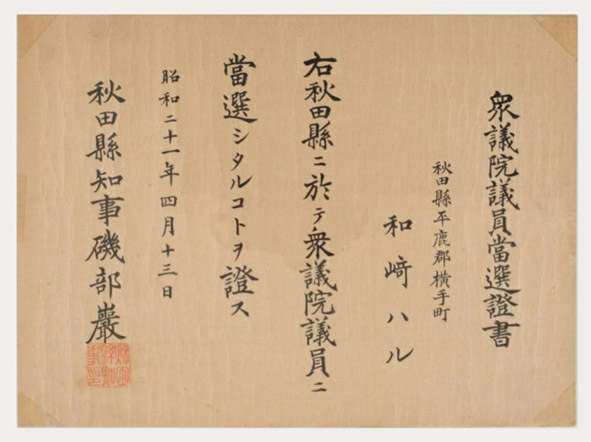 衆議院議員當選證書
秋田縣平鹿郡横手町
和﨑ハル
右秋田縣ニ於テ衆議院議員ニ
當選シタルコトヲ證ス
昭和二十一年四月十三日
秋田縣知事磯部巖